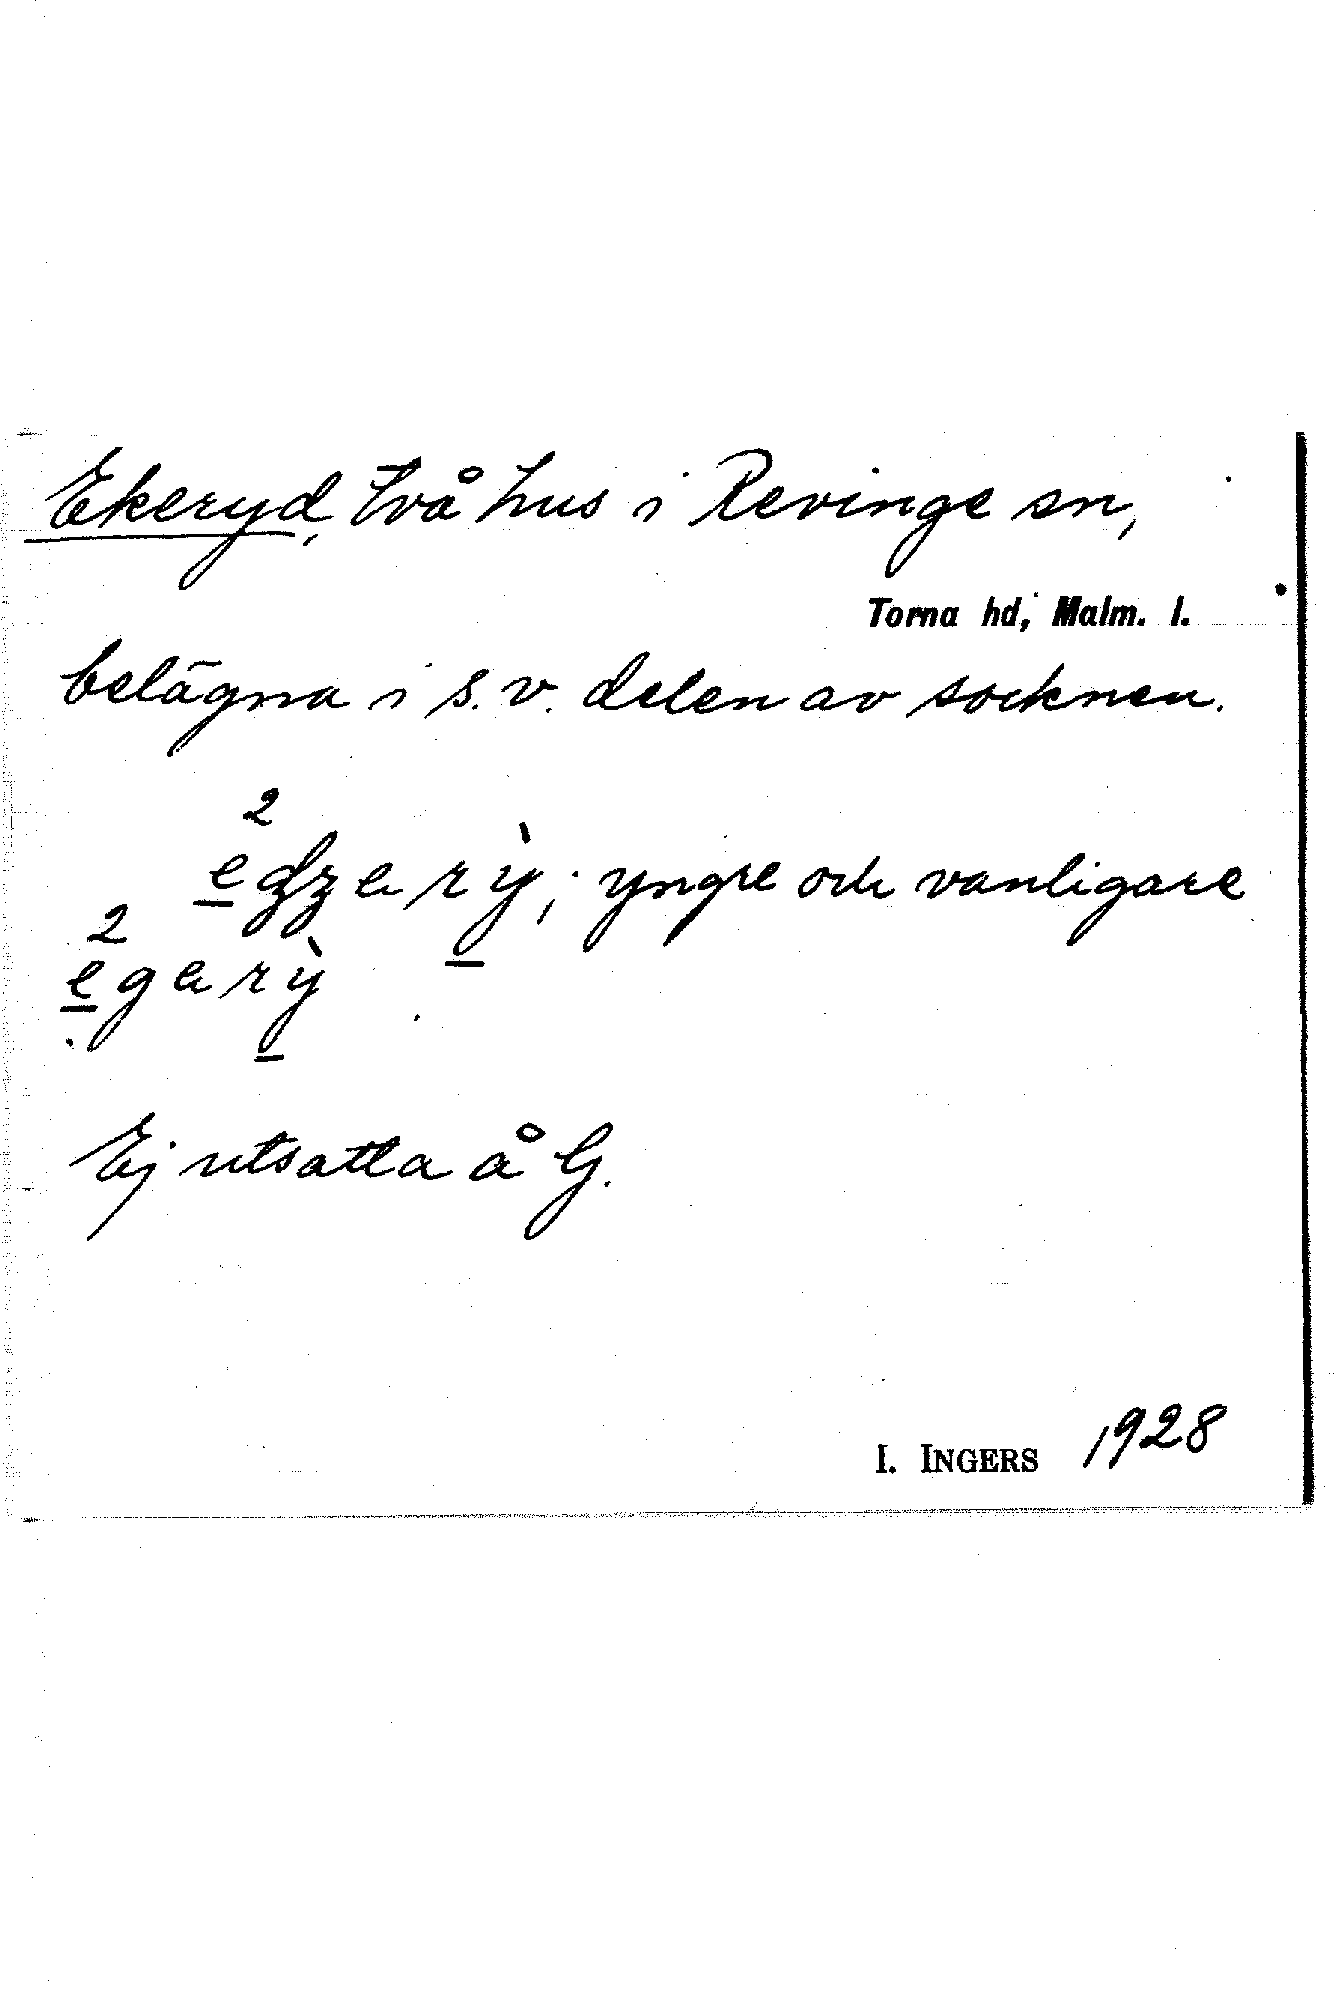 Ekeryd, två hus i Revinge sn,
Torna hd, Malm. l.
belägna i s. v. delen av socknen.
²e̲dʒərỳ̲; yngre och vanligare
²e̲gərỳ̲
Ej utsatta å G.
I. INGERS 1928